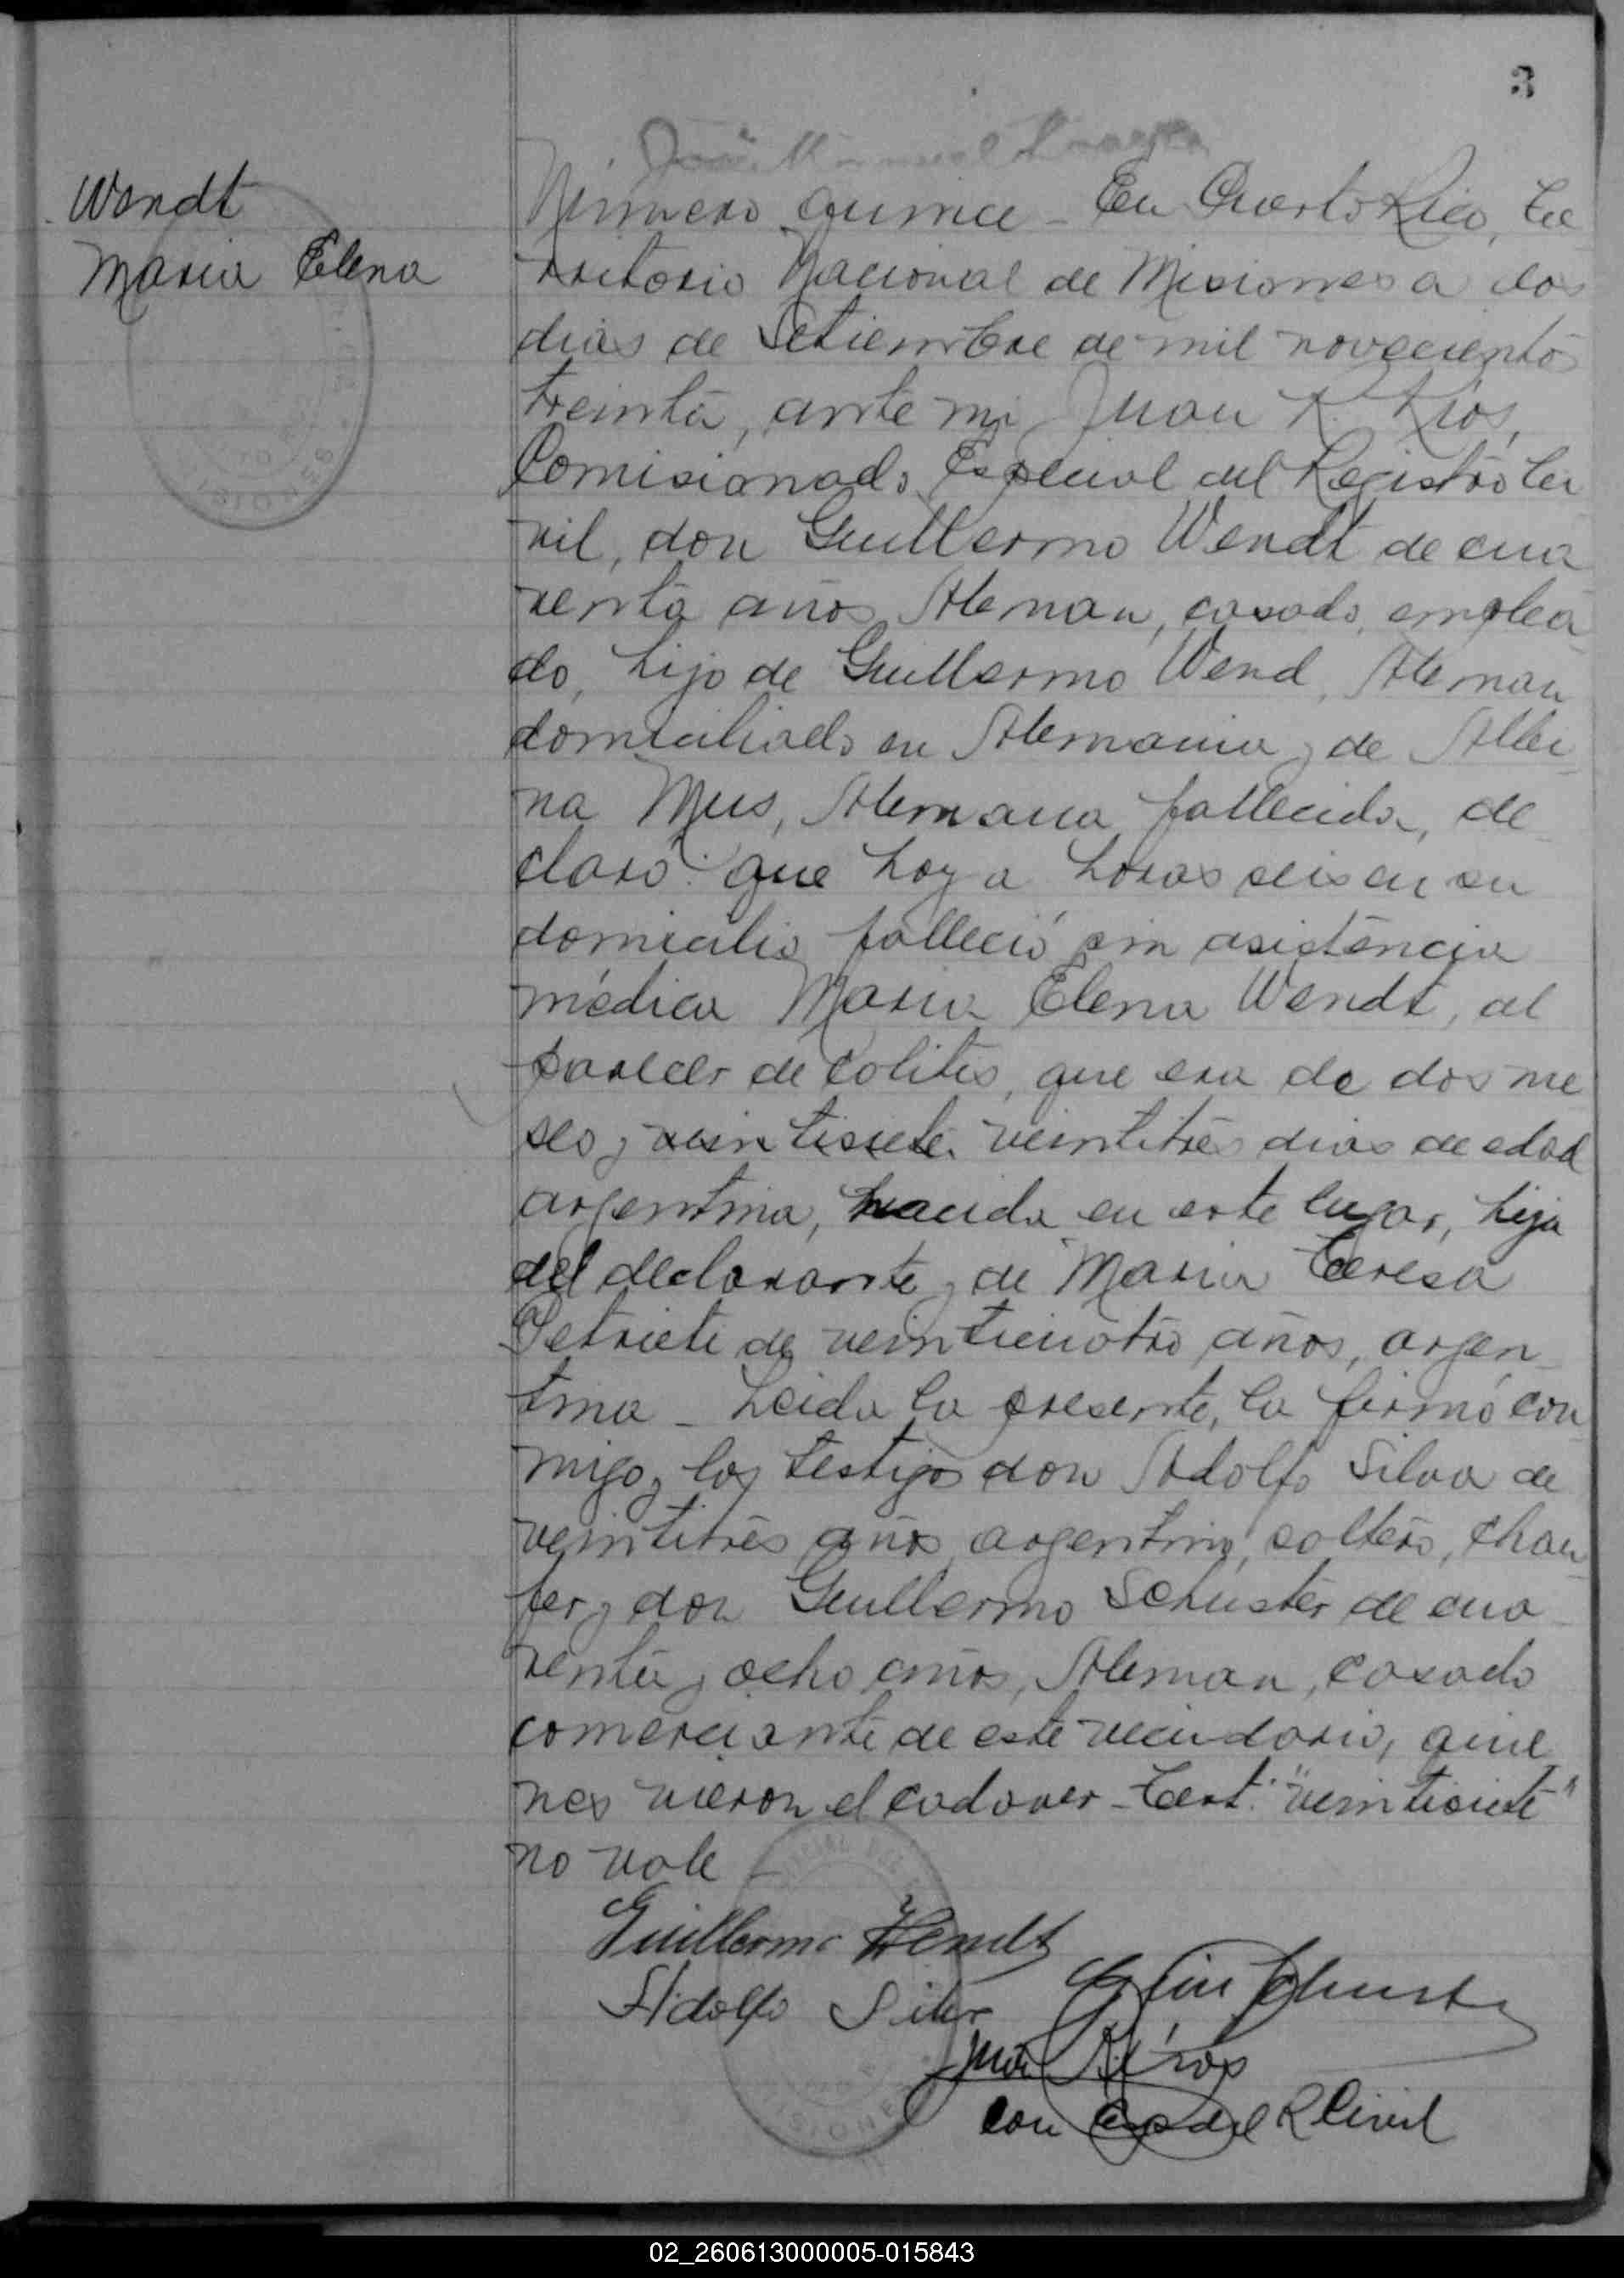 3
Wendt
Maria Elena
José Manuel
Número quince - En Puerto Rico, Te
rritorio Nacional de Misiones a dos
dias de Setiembre de mil novecientos
treinta, ante mi Juan R. Rios,
Comisionado Especial del Registro Ci
vil, don Guillermo Wendt de cua
renta años, Aleman, casado, emplea
do, hijo de Guillermo Wend, Aleman
domiciliado en Alemania y de Albi
na Mus, Alemana, fallecida, de
claró: que hoy a horas seis en su
domicilio falleció sin asistencia
médica Maria Elena Wendt, al
parecer de colitis, que era de dos me
ses y veintisiete veintitrés dias de edad
argentina, nacida en este lugar, hija
del declarante y de Maria Teresa
Petrieti de veinticuatro años, argen
tina - Leida la presente, la firmó con
migo y los testigos don Adolfo Silva de
veintitrés años, argentino, soltero, chau
fer y don Guillermo Schuster de cua
renta y ocho años, Aleman, casado
comerciante de este vecindario, quie
nes vieron el cadaver - Test: "veintisiete"
no vale -
Guillermo Wendt
Adolfo Silva
Juan R. Rios
Com Esp del R Civil
MISIONES
02_260613000005-015843